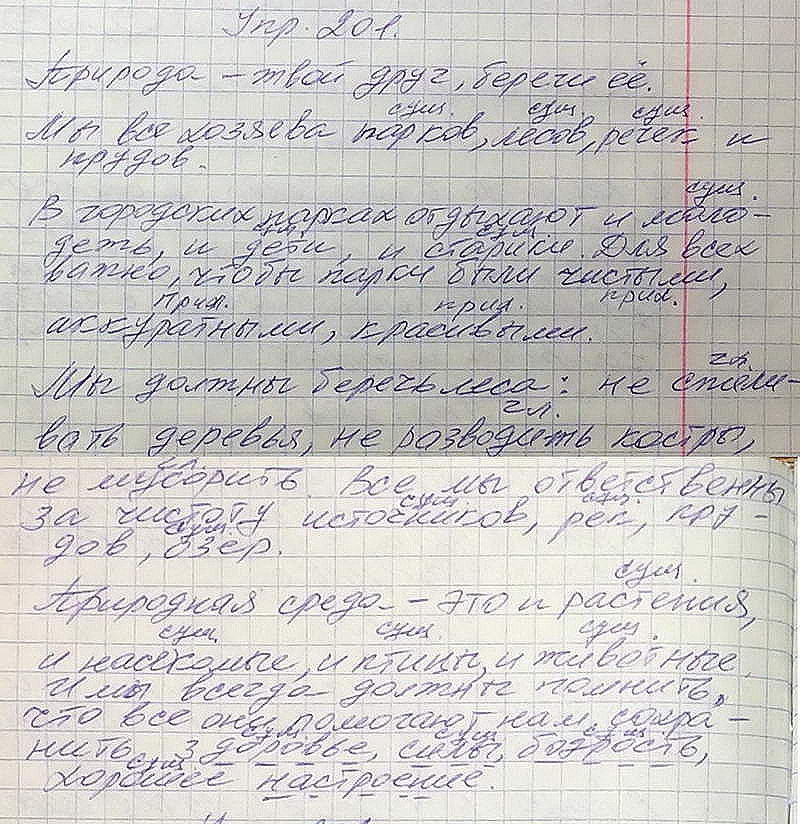 Упр. 201.
Природа – твой друг, береги её.
сущ. сущ. сущ.
Мы все хозяева парков, лесов, речек и
прудов.
сущ.
В городских парках отдыхают и моло-
сущ. сущ.
дежь, и дети, и старики. Для всех
важно, чтобы парки были чистыми,
прил. прил. прил.
аккуратными, красивыми.
гл.
Мы должны беречь леса: не спили-
гл.
вать деревья, не разводить костры,
гл.
не мусорить. Все мы ответственны
сущ. сущ.
за чистоту источников, рек, пру-
сущ.
дов, озер.
сущ.
Природная среда – это и растения,
сущ. сущ. сущ.
и насекомые, и птицы, и животные.
И мы всегда должны помнить,
что все они помогают нам сохра-
сущ. сущ. сущ.
нить здоровье, силы, бодрость,
сущ.
хорошее настроение.